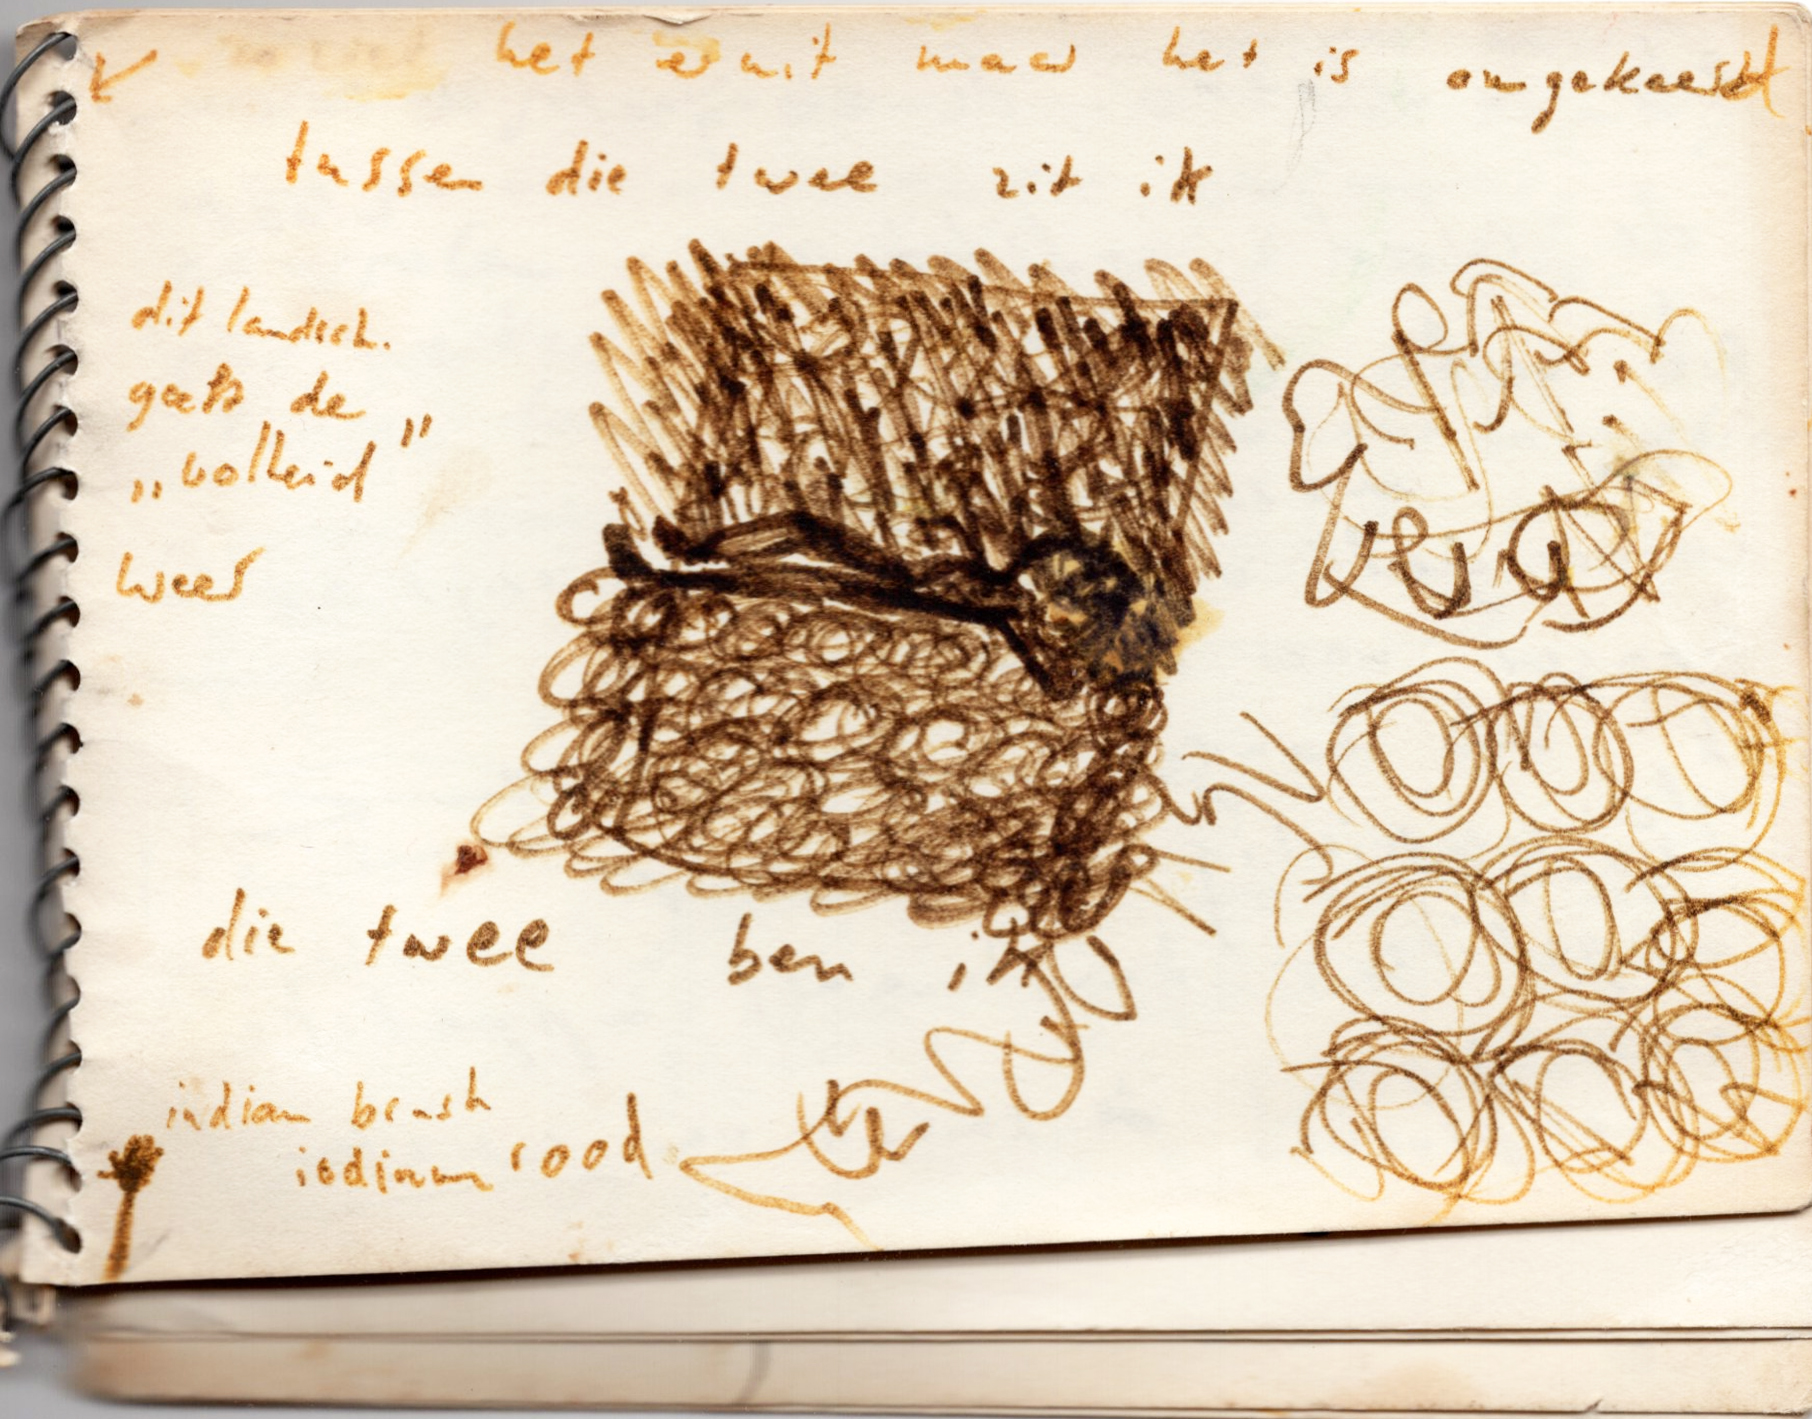 zo ziet het er uit maar het is omgekeerd
tussen die twee zit ik
dit landsch.
geeft de
„bolheid”
weer
die twee ben ik
indian brush
indian rood